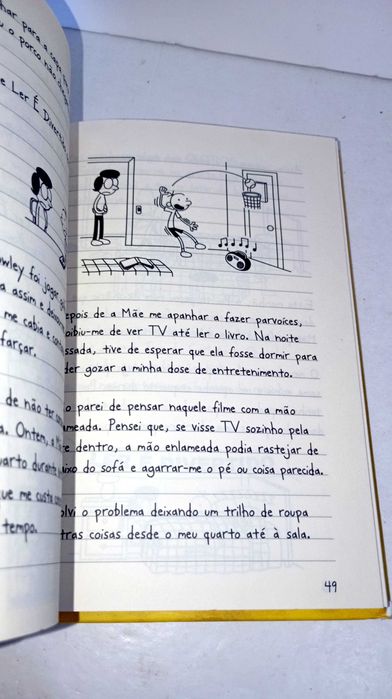 har para a
u o porco não
e Ler É
wley foi jogar
a assim e
me cabia e
farçar.
de não ter
a. Ontem, a
uarto durante
ue me custa
tempo.
epois de a Mãe me apanhar a fazer parvoíces,
oibiu-me de ver TV até ler o livro. Na noite
ssada, tive de esperar que ela fosse dormir para
der gozar a minha dose de entretenimento.
o parei de pensar naquele filme com a mão
ameada. Pensei que, se visse TV sozinho pela
te dentro, a mão enlameada podia rastejar de
aixo do sofá e agarrar-me o pé ou coisa parecida.
olvi o problema deixando um trilho de roupa
tras coisas desde o meu quarto até à sala.
49